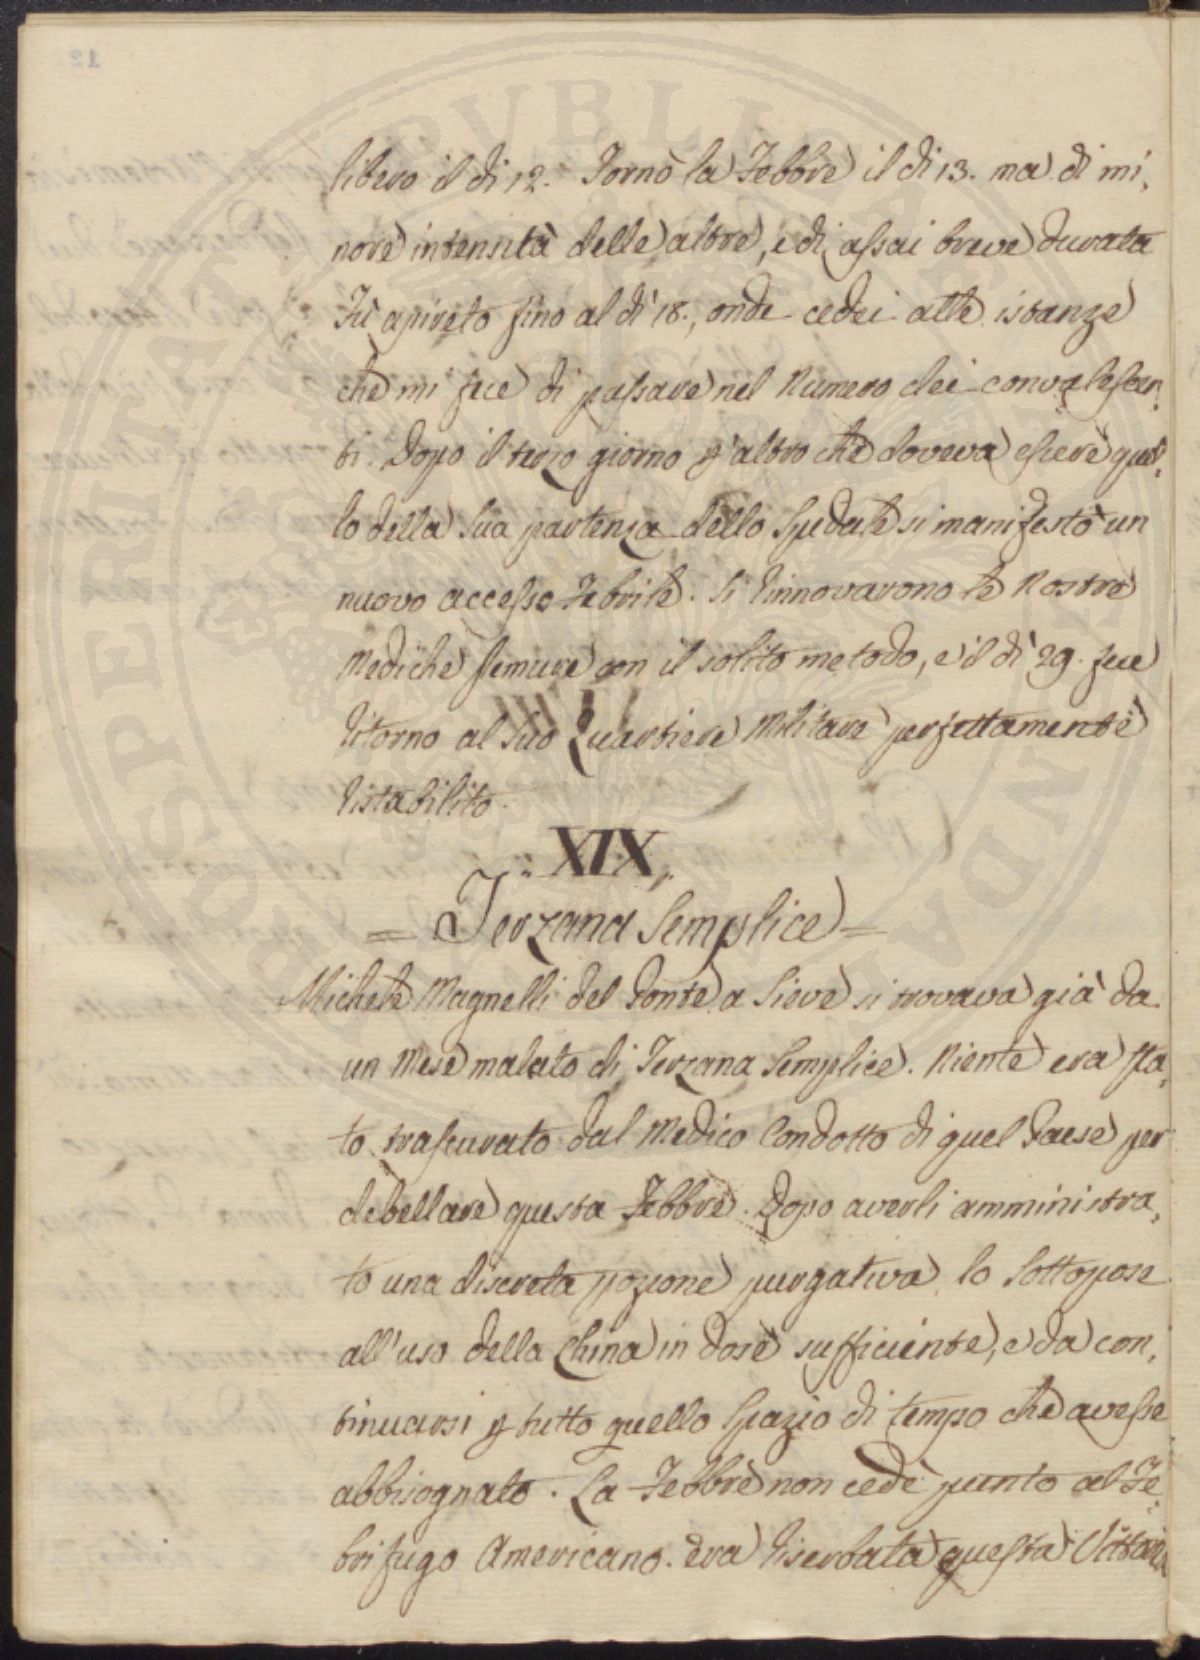 libero il dì 12. Tornò la Febbre il dì 13. ma di mi,
nore intensità delle altre, e di assai breve durata
Fù apireto fino al dì 18., onde cedei alle istanze
che mi fece di passare nel Numero dei convalescen,
ti. Dopo il terzo giorno p altro che doveva essere quel,
lo della Sua partenza dello Spedale si manifestò un
nuovo accesso Febrile. Si Rinnovarono le Nostre
Mediche premure con il solito metodo, e il dì 29. fece
Ritorno al Suo Quartiere Militare perfettamente
Ristabilito.
XIX,
= Terzana Semplice =
Michele Magnelli del Ponte a Sieve si trovava già da
un Mese malato di Terzana Semplice. Niente era sta,
to trascurato dal Medico Condotto di quel Paese per
debellare questa Febbre. Dopo averli amministra,
to una discreta pozione purgativa lo Sottopose
all'uso della China in dose sufficiente, e da con,
tinuarsi p tutto quello Spazio di tempo che avesse
abbisognato. La Febbre non cedè punto al Fe,
brifugo Americano. Era Riserbata questa Vittoria
PROSPERITATI PUBLICAE AUGENDAE
12